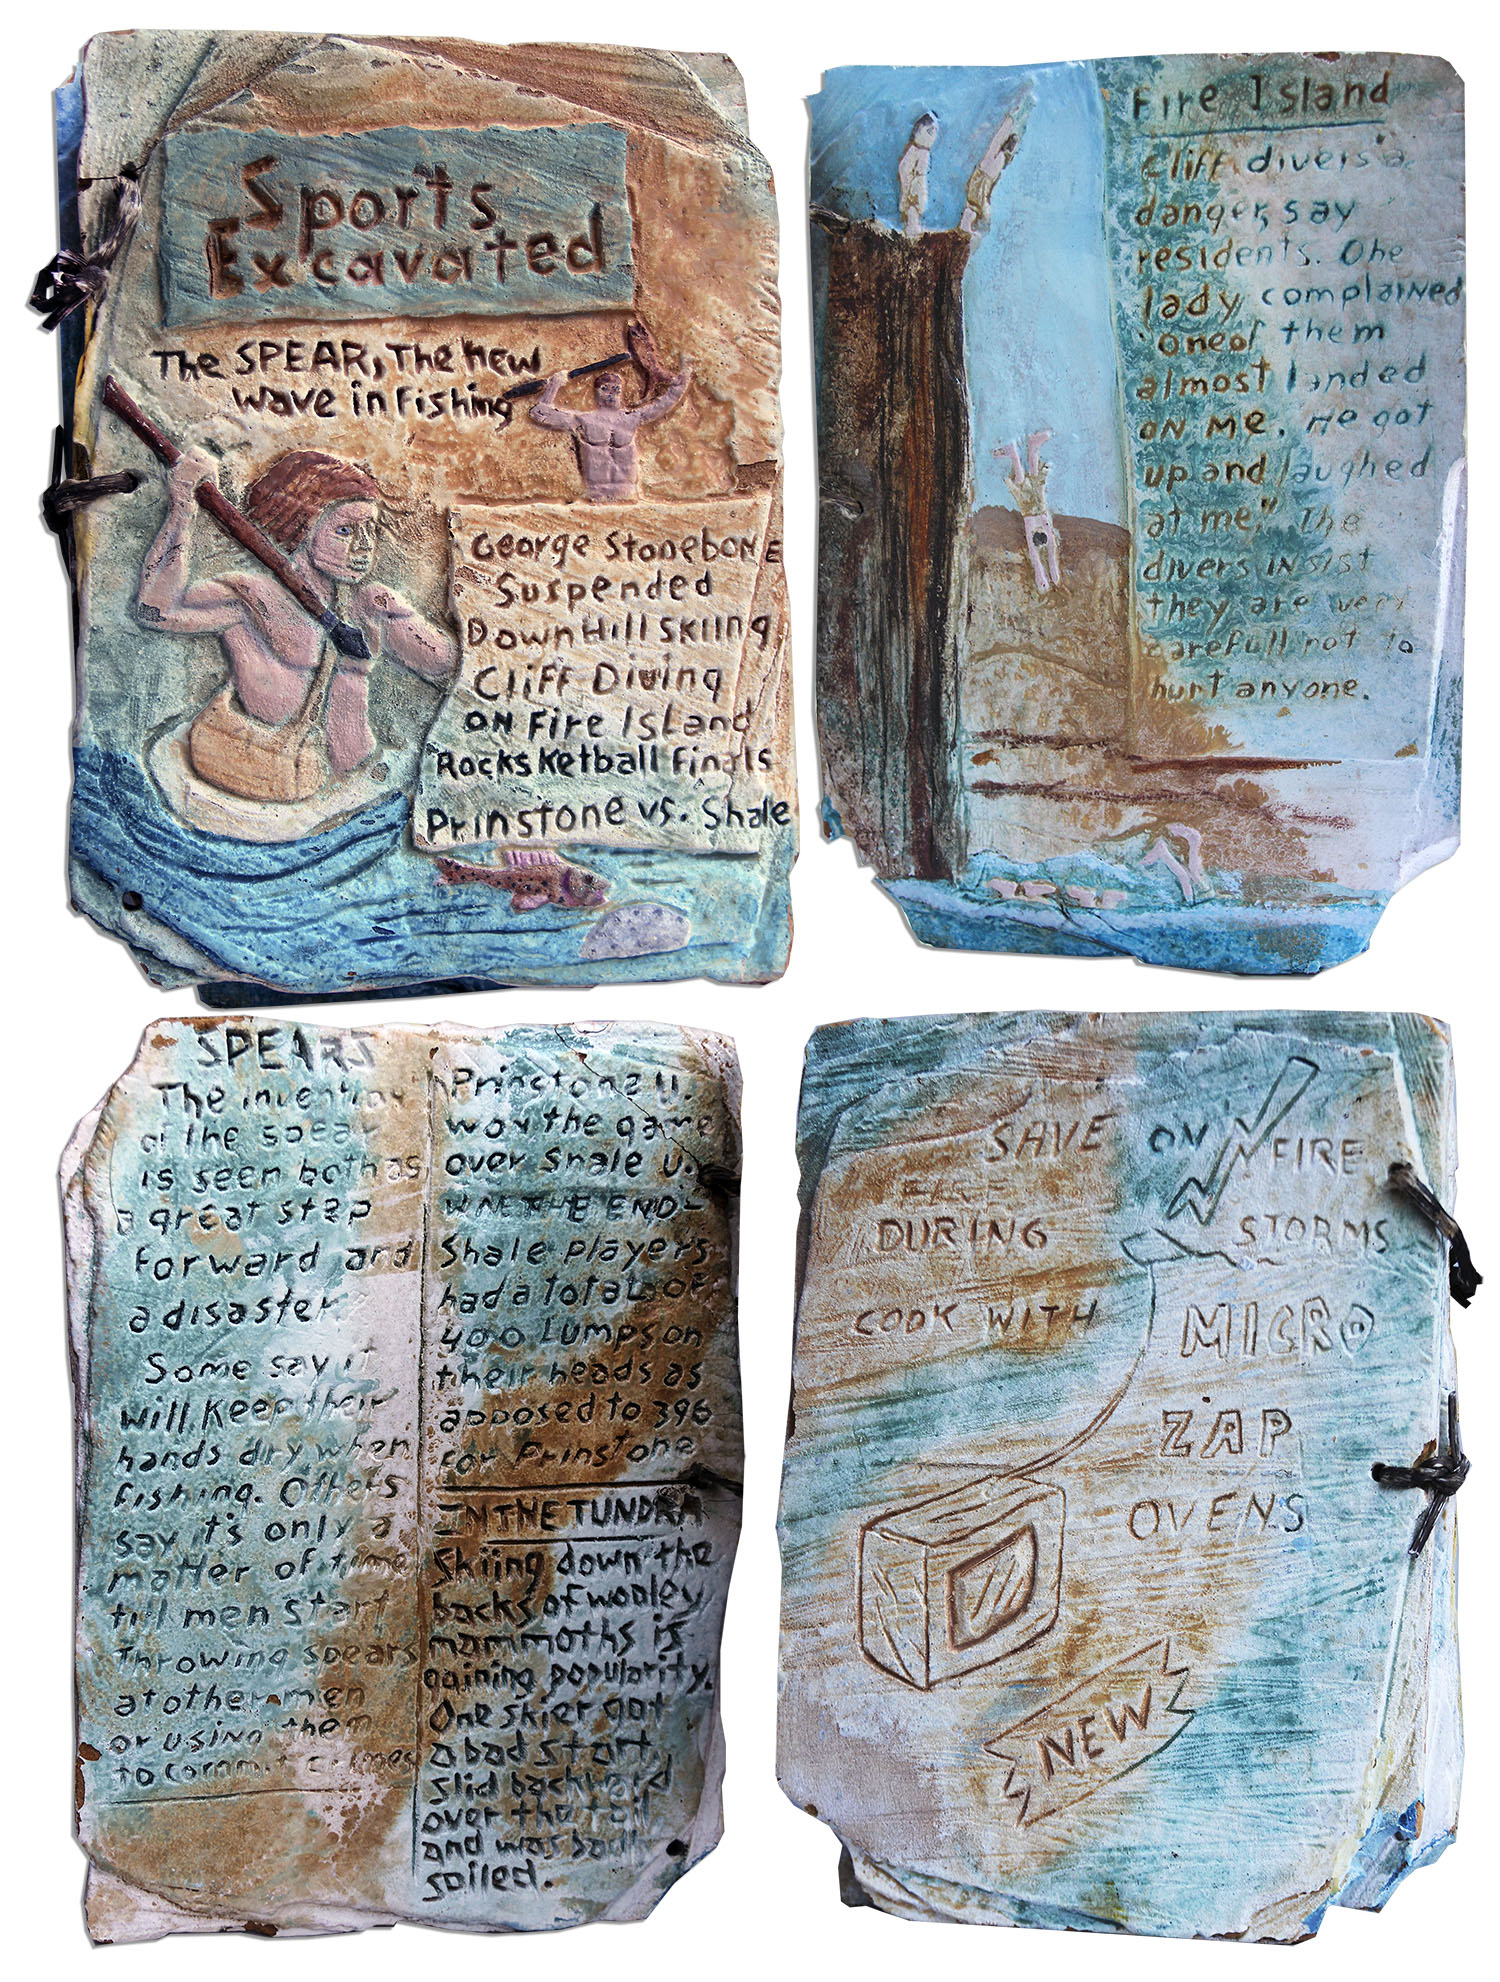 Sports
Excavated
The SPEAR, The new
wave in Fishing
George StoneboNE
Suspended
DownHill SKIINg
Cliff Diving
ON Fire ISLand
Rocks Ketball Finals
Prinstone vs. Shale
Fire Island
Cliff divers a
danger, say
residents. One
lady complaiNed
'one of them
almost landed
ON Me. He got
up and laughed
at me." The
divers iNsist
they are very
carefull not to
hurt anyone.
SPEARS
The invention
of the spear
is seen both as
a great step
forward and
a disaster.
Some say it
will keep their
hands dry when
fishing. Others
say it's only a
matter of time
till men start
Throwing spears
at other men
or using them
to commit crimes
Prinstone U.
won the game
over Shale U.
IN THE END-
Shale players
had a total of
400 Lumps on
their heads as
apposed to 396
for Prinstone
IN THE TUNDRA
Skiing down the
backs of wooley
mammoths is
gaining popularity.
One skier got
a bad start,
slid backward
over the tail
and was badl
soiled.
SAVE ON FIRE
DURING STORMS
COOK WITH
MICRO
ZAP
OVENS
NEW